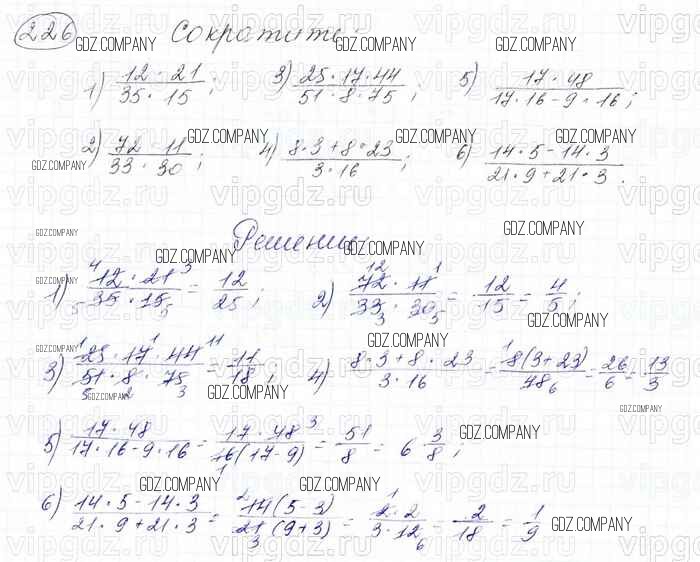 226 Сократить:
1) 12 · 21 / 35 · 15 ; 3) 25 · 17 · 44 / 51 · 8 · 75 ; 5) 17 · 48 / 17 · 16 - 9 · 16 ;
2) 72 · 11 / 33 · 30 ; 4) 8 · 3 + 8 · 23 / 3 · 16 ; 6) 14 · 5 - 14 · 3 / 21 · 9 + 21 · 3 .
Решение:
1) 12 · 21 / 35 · 15 = 12 / 25 ; 2) 72 · 11 / 33 · 30 = 12 / 15 = 4 / 5 ;
3) 25 · 17 · 44 / 51 · 8 · 75 = 11 / 18 ; 4) 8 · 3 + 8 · 23 / 3 · 16 = 8(3 + 23) / 48 = 26 / 6 = 13 / 3
5) 17 · 48 / 17 · 16 - 9 · 16 = 17 · 48 / 16(17 - 9) = 51 / 8 = 6 3/8 ;
6) 14 · 5 - 14 · 3 / 21 · 9 + 21 · 3 = 14(5 - 3) / 21(9 + 3) = 2 · 2 / 3 · 12 = 2 / 18 = 1 / 9
GDZ.COMPANY
vipgdz.ru